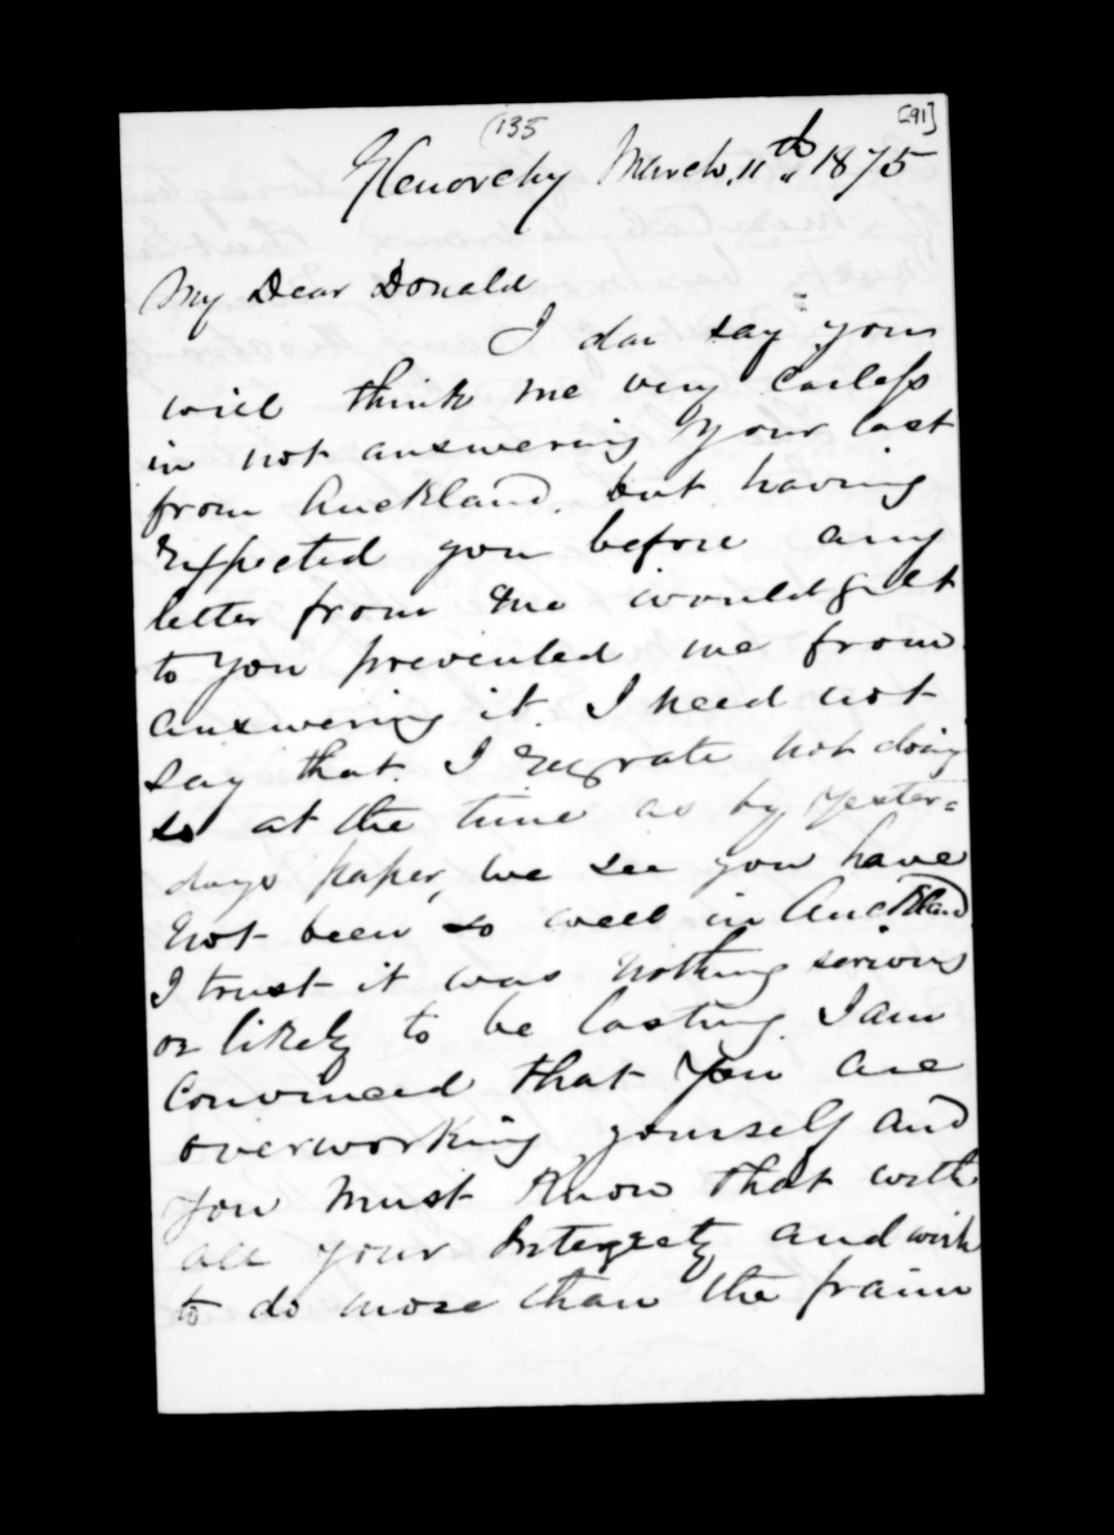 (135
[91]
Glenorchy March, 11th, 1875
My Dear Donald
I dar say you
will think me very carless
in not answering Your last
from Auckland. but having
Expected you before any
letter from me would get
to You prevented me from
answering it. I need not
say that I regrate not doing
so at the time as by Yester=
days paper, we see you have
not been so well in Auckland
I trust it was nothing serious
or likely to be lasting. I am
Convinced that You are
overworking yourself and
You must Know that with
all your Integrety and wish
to do more than the fraim